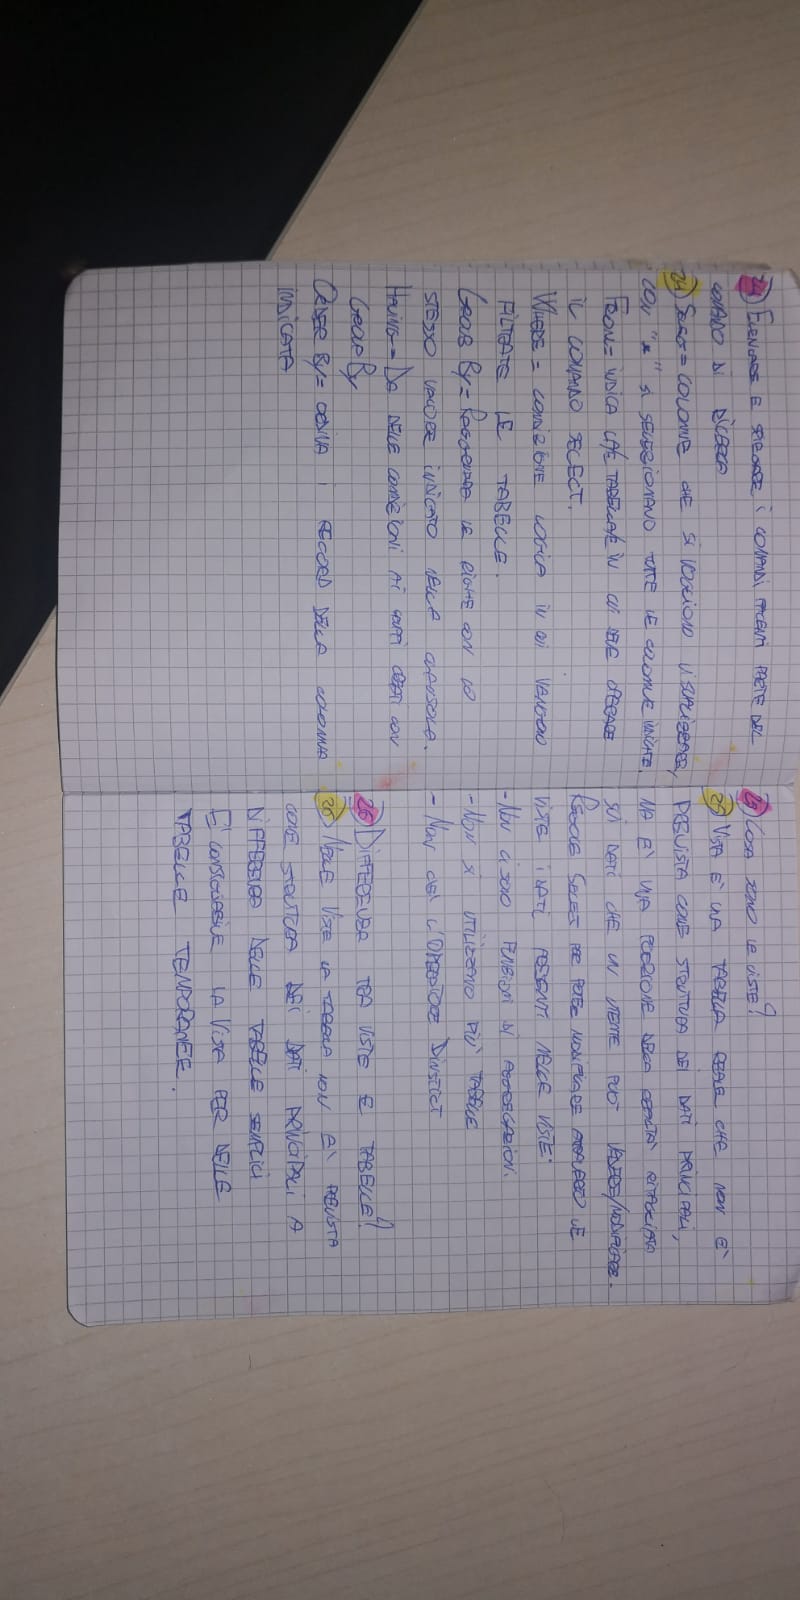 24) ELENCARE E SPIEGARE i COMANDI FACENTI PARTE DEL
COMANDO DI RICERCA
24) SELECT = COLONNE CHE SI VOGLIONO VISUALIZZARE,
CON "*" SI SELEZIONANO TUTTE LE COLONNE INDICATE.
FROM = INDICA LA/E TABELLA/E IN CUI DEVE OPERARE
IL COMANDO SELECT.
WHERE = CONDIZIONE LOGICA IN CUI VENGONO
FILTRATE LE TABELLE.
GROUP By = RAGGRUPPA LE RIGHE CON LO
STESSO VALORE INDICATO NELLA CLAUSOLA.
HAVING = DA DELLE CONDIZIONI AI GRUPPI CREATI CON
GROUP By
ORDER By = ORDINA i RECORD DELLA COLONNA
INDICATA
25) COSA SONO LE VISTE?
25) VISTA E' UNA TABELLA REALE CHE NON E'
PREVISTA COME STRUTTURA DEI DATI PRINCIPALI,
MA E' UNA PORZIONE DELLA REALTA' RITAGLIATA
SUI DATI CHE UN UTENTE PUO' VEDERE/MODIFICARE.
REGOLE SELECT PER POTER MODIFICARE ATTRAVERSO LE
VISTE i DATI PRESENTI NELLE VISTE:
- NON CI SONO FUNZIONI DI AGGREGAZION.
- NON SI UTILIZZANO PIÙ TABELLE
- NON L'OPERATORE DINSTICT
26) DIFFERENZA TRA VISTE E TABELLE?
26) NELLE VISTE LA TABELLA NON E' PREVISTA
COME STRUTTURA DEI DATI PRINCIPALI A
DIFFERENZA DELLE TABELLE SEMPLICI
E' CONSIGLIABILE LA VISTA PER DELLE
TABELLE TEMPORANEE.